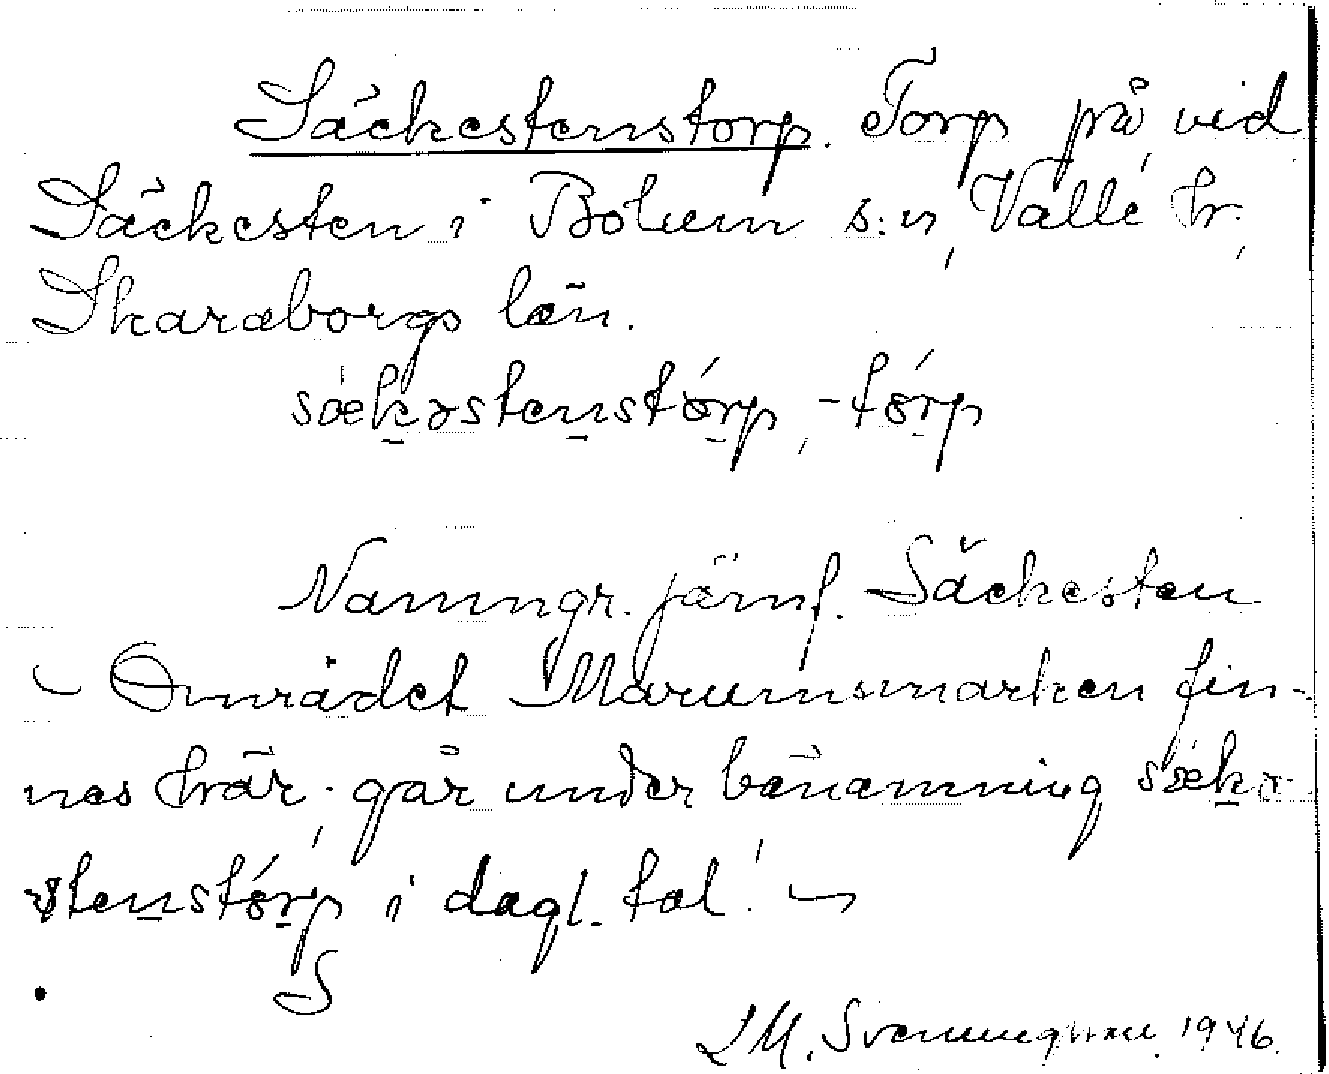 Säckestenstorp. Torp på, vid
Säckesten i Bolum s:n, Valle hr,
Skaraborgs län.
sækəstenstórp, -tórp
Namngr. jämf. Säckesten
– Området Marumsmarken fin-
nes här; går under benämning sækə-
stenstórp i dagl. tal! –
S
1946.